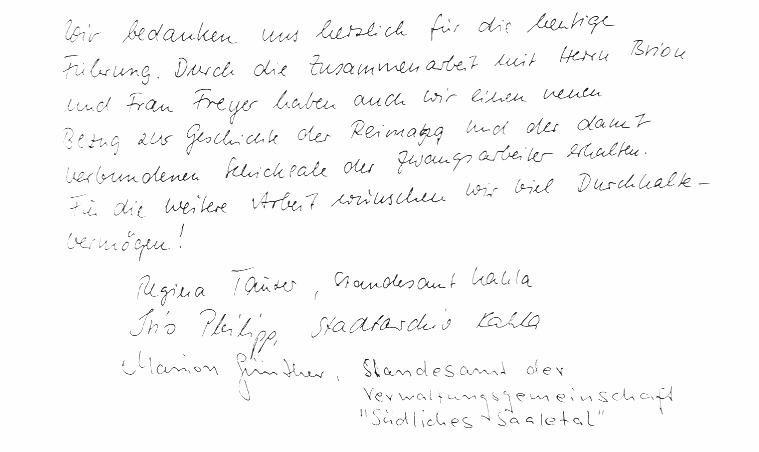 Wir bedanken uns herzlich für die heutige
Führung. Durch die Zusammenarbeit mit Herrn Brion
und Frau Freyer haben auch wir einen neuen
Bezug zur Geschichte der Reimahg und der damit
verbundenen Schicksale der Zwangsarbeiter erhalten.
Für die weitere Arbeit wünschen wir viel Durchhalte-
vermögen!
Regina Täuser, Standesamt Kahla
Iris Philipp, Stadtarchiv Kahla
Marion Günther, Standesamt der
Verwaltungsgemeinschaft
"Südliches Saaletal"